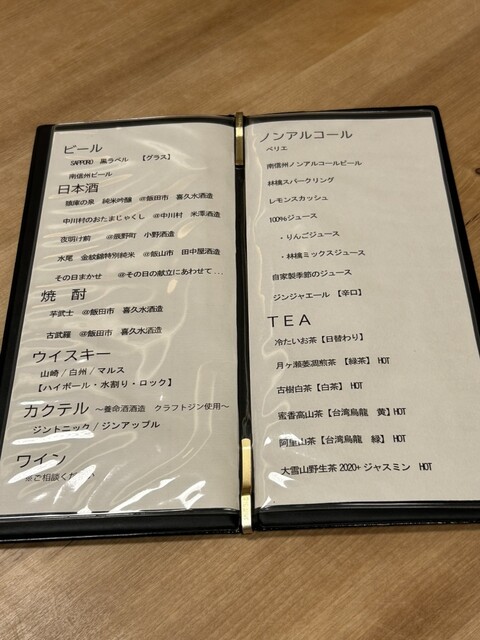 ビール
SAPPORO 黒ラベル 【グラス】
南信州ビール
日本酒
猿庫の泉 純米吟醸 @飯田市 喜久水酒造
中川村のおたまじゃくし @中川村 米澤酒造
夜明け前 @辰野町 小野酒造
水尾 金紋錦特別純米 @飯山市 田中屋酒造
その日まかせ @その日の献立にあわせて...
焼 酎
芋武士 @飯田市 喜久水酒造
古武羅 @飯田市 喜久水酒造
ウイスキー
山崎/白州/マルス
【ハイボール・水割り・ロック】
カクテル ～養命酒酒造 クラフトジン使用～
ジントニック/ジンアップル
ワイン
※ご相談ください
ノンアルコール
ペリエ
南信州ノンアルコールビール
林檎スパークリング
レモンスカッシュ
100%ジュース
・りんごジュース
・林檎ミックスジュース
自家製季節のジュース
ジンジャエール 【辛口】
TEA
冷たいお茶【日替わり】
月ヶ瀬萎凋煎茶 【緑茶】 HOT
古樹白茶【白茶】 HOT
蜜香高山茶【台湾烏龍 黄】HOT
阿里山茶【台湾烏龍 緑】 HOT
大雪山野生茶 2020+ ジャスミン HOT